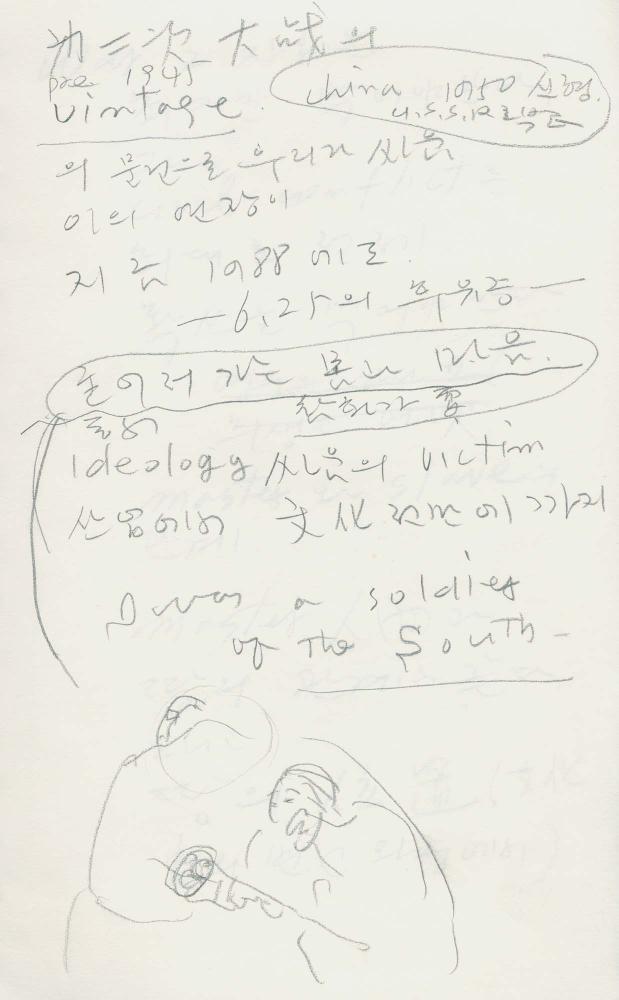 第二次大戰의
pre 1945
vintage.
china 1950 신형.
U.S.S.R
의 물건으로 우리가 싸움
이의 연장이
지금 1988 에도.
— 6.25의 후유증 —
들어져 가는 몸과 마음.
ideology 싸움의 victim
산업에서 文化 전반에 까지
I was a soldier
of the South —